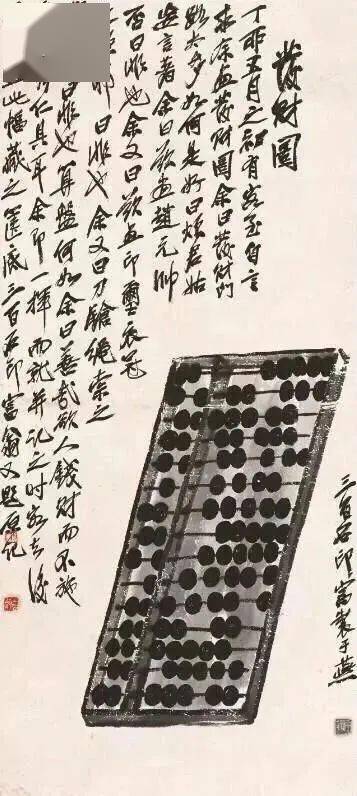 發財圖
丁卯五月之初有客至自言
求余畫發財圖余曰發財門
路太多如何是好曰煩君姑
妄言著余曰欲畫趙元帥
否曰非也余又曰欲畫印璽衣冠
耶曰非也余又曰刀鎗繩索之
曰非也算盤何如余曰善哉欲人錢財而不施
仁具耳余即一揮而就并記之時客去後
此幅藏之篋底三百石印富翁又題原記
三百石印富製于燕